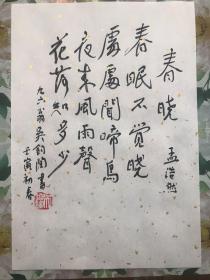 春晓
孟浩然
春眠不觉晓
處處聞啼鳥
夜来風雨聲
花落知多少
九六翁吴钧陶書
壬寅初春